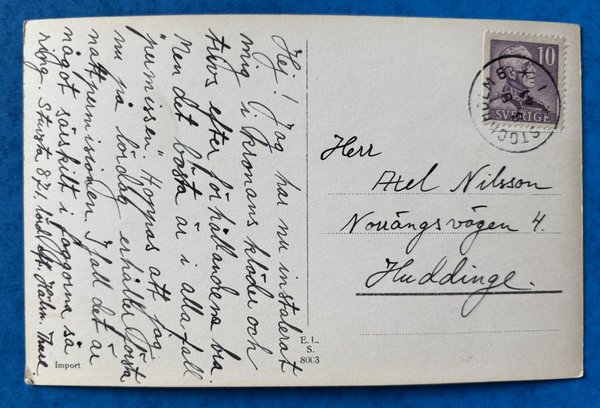 Hej! Jag har nu instalerat
mig i Kronans kläder och
trivs efter förhållandena bra.
Men det bästa är i alla fall
"permissen". Hoppas att jag
nu på lördag erhåller första
nattpermissionen. Ifall det är
något särskilt i faggorna så
ring. Sturyk 871, Thure
Import
E. L.
S.
8003
10
SVERIGE
STOCKHOLM 8
Herr
Axel Nilsson
Norrängsvägen 4.
Huddinge.